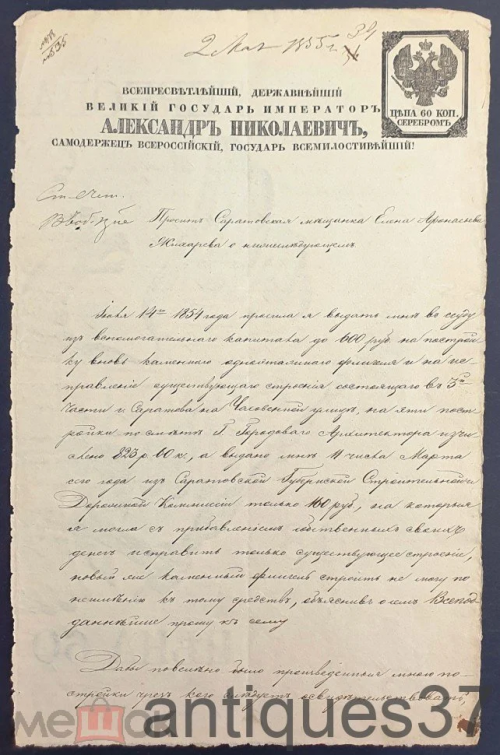 2 Мая 1855 г. 39
ЦѢНА 60 КОП.
СЕРЕБРОМЪ.
ВСЕПРЕСВѢТЛѢЙШІЙ, ДЕРЖАВНѢЙШІЙ
ВЕЛИКІЙ ГОСУДАРЬ ИМПЕРАТОРЪ
АЛЕКСАНДРЪ НИКОЛАЕВИЧЪ,
САМОДЕРЖЕЦЪ ВСЕРОССІЙСКІЙ, ГОСУДАРЬ ВСЕМИЛОСТИВѢЙШІЙ!
Проситъ Саратовская мѣщанка Елена Афанасьева
Жихарева о нижеслѣдующемъ
14го 1854 года просила я выдать мнѣ въ ссуду
изъ вспомогательнаго капитала до 600 руб. на построй
ку вновь каменнаго одноэтажнаго флигеля и на ис
правленіе существующаго строенія состоящаго въ 3й
части г. Саратова на Часовенной улицѣ, на эти пост
ройки по смѣтѣ Г. Городоваго Архитектора изчи
слено 823 р. 60 к., а выдано мнѣ 11 числа Марта
сего года изъ Саратовской Губернской Строительной и
Дорожной Коммиссіи только 160 руб., на которыя
я могла съ прибавленіемъ собственныхъ своихъ
денегъ исправить только существующее строеніе,
новый же каменный флигель строить не могу по
неимѣнію къ тому средствъ, объяснивъ о семъ Всепод
даннѣйше прошу къ сему
Дабы повелѣно было произведенныя мною по
стройки чрезъ кого слѣдуетъ освидѣтельствовать,
мешок
antiques37